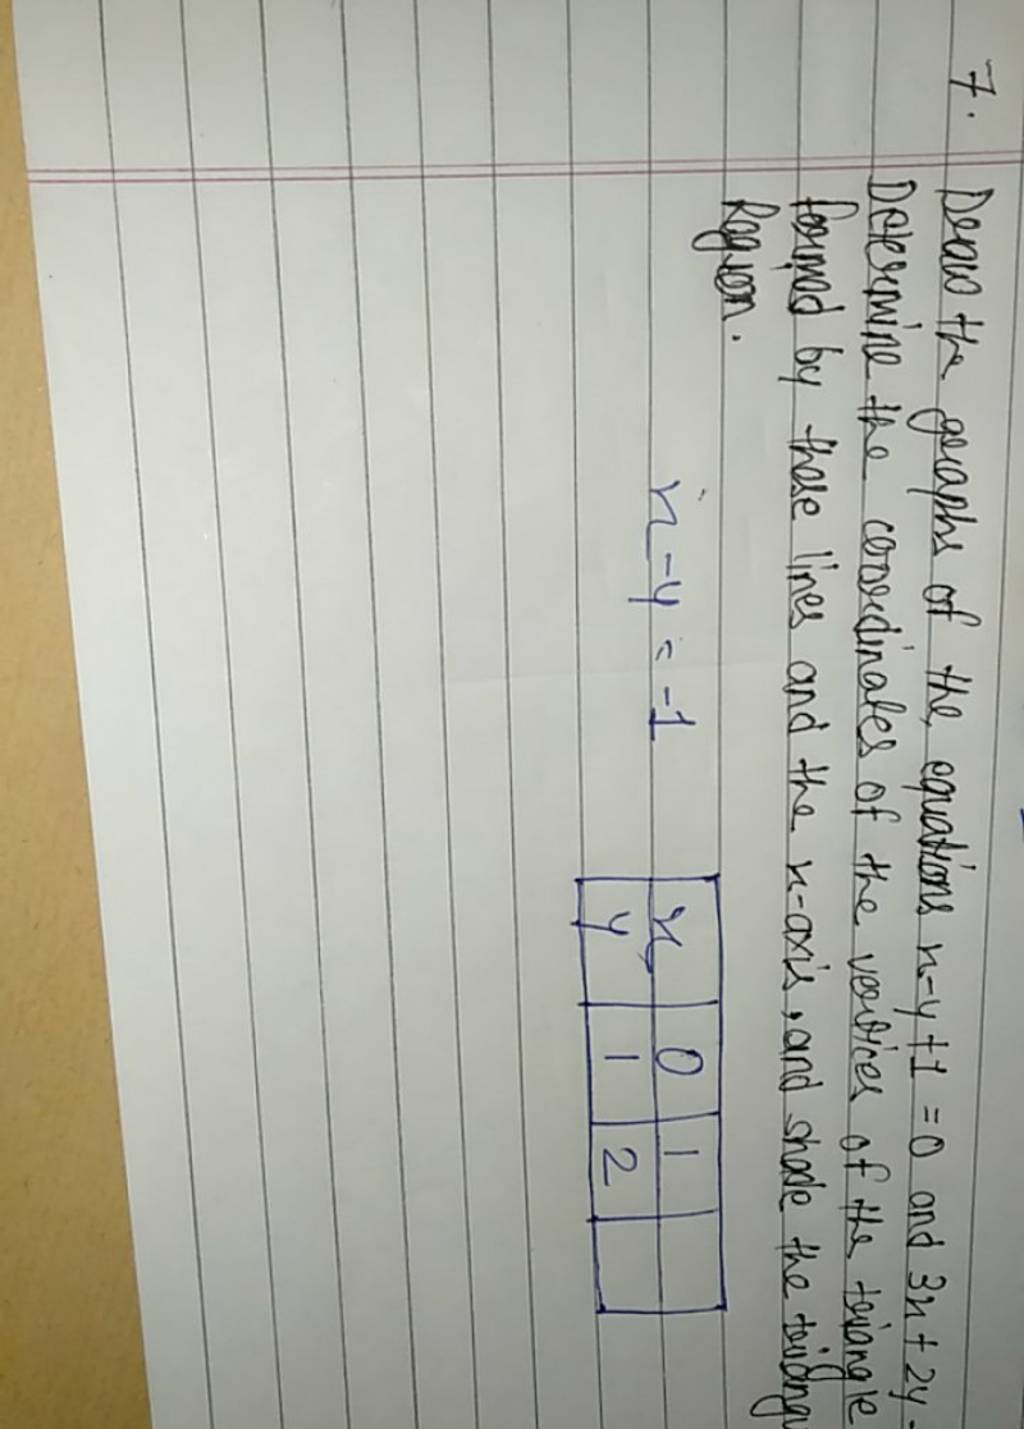 7. Draw the graphs of the equations x-y+1=0 and 3x+2y-
Determine the coordinates of the vertices of the triangle
formed by these lines and the x-axis, and shade the
Region.
x-y=-1
x 0 1
y 1 2